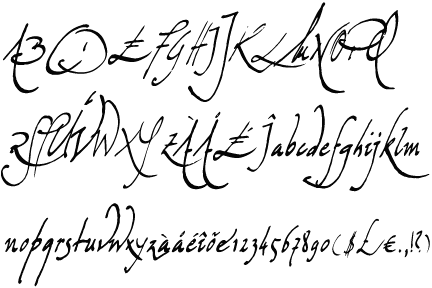 ABCDEFGHIJKLMNOPQ
RSTUVWXYZÀÁÉÎabcdefghijklm
nopqrstuvwxyzàáéîõé1234567890($£€.,!?)